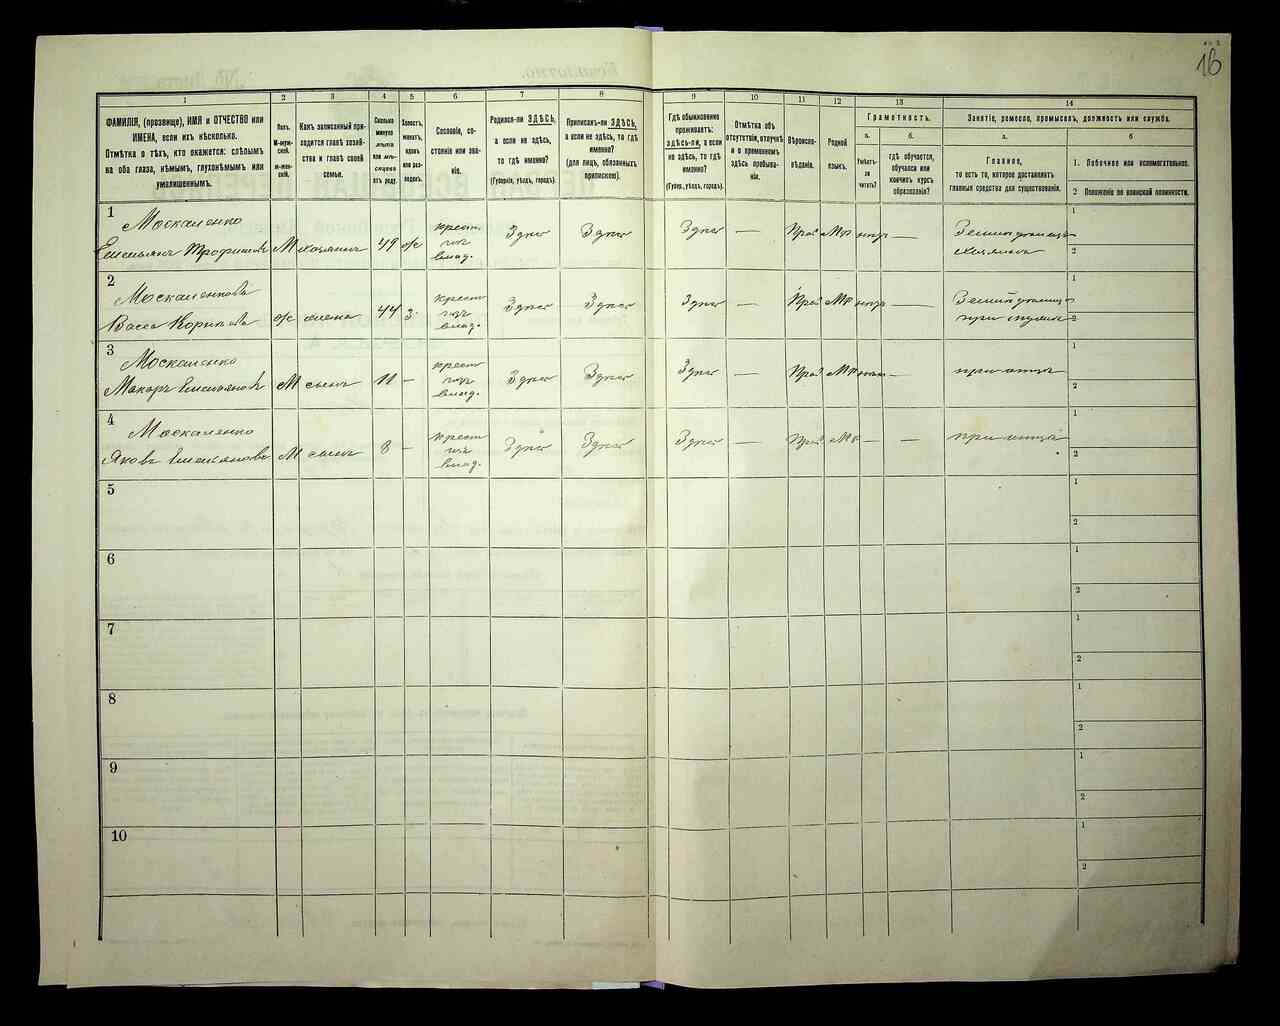 16
1
2
3
4
5
6
7
8
9
10
11
12
13
14
ФАМИЛІЯ, (прозвище), ИМЯ и ОТЧЕСТВО или
ИМЕНА, если ихъ нѣсколько.
Отмѣтка о тѣхъ, кто окажется: слѣпымъ
на оба глаза, нѣмымъ, глухонѣмымъ или
умалишеннымъ.
Полъ.
М-муж-
ской.
ж-жен-
скій.
Какъ записанный при-
ходится главѣ хозяй-
ства и главѣ своей
семьи.
Сколько
минуло
лѣтъ
или мѣ-
сяцевъ
отъ роду.
Холостъ,
женатъ,
вдовъ
или раз-
веденъ.
Сословіе, со-
стояніе или зва-
ніе.
Родился-ли ЗДѢСЬ,
а если не здѣсь,
то гдѣ именно?
(Губернія, уѣздъ, городъ).
Приписанъ-ли ЗДѢСЬ,
а если не здѣсь, то гдѣ
именно?
(для лицъ, обязанныхъ
припискою).
Гдѣ обыкновенно
проживаетъ:
здѣсь-ли, а если
не здѣсь, то гдѣ
именно?
(Губер., уѣздъ, городъ).
Отмѣтка объ
отсутствіи, отлучкѣ
и о временномъ
здѣсь пребыва-
ніи.
Вѣроиспо-
вѣданіе.
Родной
языкъ.
Грамотность.
а.
Умѣетъ-
ли
читать?
б.
гдѣ обучается,
обучался или
кончилъ курсъ
образованія?
Занятіе, ремесло, промыселъ, должность или служба.
а.
Главное,
то есть то, которое доставляетъ
главныя средства для существованія.
б
1. Побочное или вспомогательное.
2 Положеніе по воинской повинности.
1
Москаленко
Емельянъ Трофимовъ М хозяинъ 49 ж
крест.
изъ
влад.
Здѣсь Здѣсь Здѣсь — Прав Мр —
хозяинъ
1
2
2
Москаленкова
Васса ж жена 44 з.
крест
изъ
влад.
Здѣсь Здѣсь Здѣсь — Прав Мр —
при мужѣ
1
2
3
Москаленко
Макаръ Емельяновъ М сынъ 11 —
крест
изъ
влад.
Здѣсь Здѣсь Здѣсь — Прав Мр —
при отцѣ
1
2
4
Москаленко
Яковъ Емельяновъ М сынъ 8 —
крест
изъ
влад.
Здѣсь Здѣсь Здѣсь — Прав Мр — —
при отцѣ
1
2
5
1
2
6
1
2
7
1
2
8
1
2
9
1
2
10
1
2